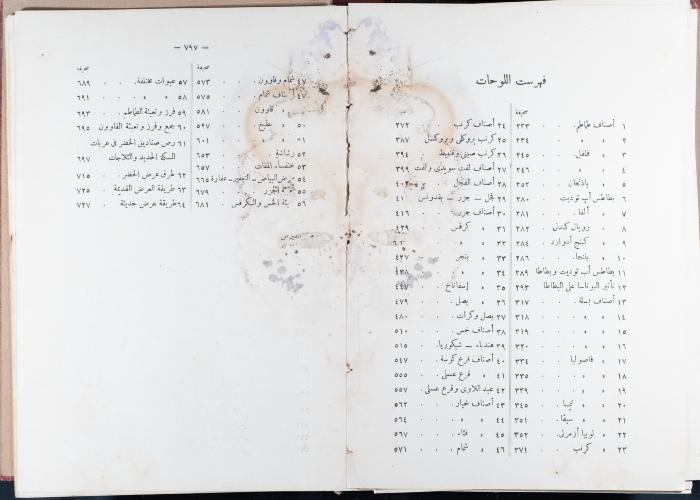 فهرست اللوحات
صحيفة
١ أصناف طماطم . . ٢٢٣
٢ » » . . ٢٣٤
٣ » فلفل . . ٢٤٥
٤ » » . . ٢٤٦
٥ » باذنجان . . ٢٥٢
٦ بطاطس أب توديت . ٢٨٠
٧ » ألفا . . ٢٨١
٨ » رويال كدنى . ٢٨٢
٩ » كنج أدوارد . ٢٨٤
١٠ » بانتجا . . ٢٨٦
١١ بطاطس أب توديت وبطاطا ٢٨٩
١٢ تأثير البوتاسا على البطاطا ٢٩٣
١٣ أصناف بسلة . . ٣١٧
١٤ » » . . ٣١٨
١٥ » » . . ٣١٩
١٦ » » . . ٣٢٠
١٧ » فاصوليا . . ٣٣٤
١٨ » » . . ٣٣٥
١٩ » » . . ٣٣٩
٢٠ » ليما . . ٣٤٥
٢١ » سيفا . . ٣٥١
٢٢ » لوبيا أزمرلى . ٣٥٢
٢٣ » كرنب . ٣٧١
٢٤ أصناف كرنب . . ٣٧٢
٢٥ كرنب بروكلى وبروكسل ٣٨٧
٢٦ كرنب صينى وقنبيط . ٣٩٤
٢٧ أصناف لفت سويدى ولفت ٣٩٩
٢٨ أصناف الفجل . .
٢٩ فجل – جزر – بقدونس
٣٠ أصناف جزر . . ٤١٦
٣١ » كرفس . ٤٢٩
٣٢ » » . .
٣٣ » بنجر . ٤٣٧
٣٤ » » . . ٤٣٨
٣٥ » إسفاناخ . ٤٤٧
٢٦ » بصل . . ٤٧٩
٢٧ بصل وكرات . . ٤٨٠
٣٨ أصناف خس . . ٥١٠
٣٩ هندباء – شيكوريا . ٥١٥
٤٠ أصناف قرع كوسة . ٥٤٧
٤١ » قرع عسلى . ٥٥٥
٤٢ عبد اللاوى وقرع عسلى . ٥٥٧
٤٣ أصناف خيار . . ٥٦٢
٤٤ » » . . ٥٦٤
٤٥ » قثاء . . ٥٦٧
٤٦ » شمام . . ٥٧١
— ٧٩٧ —
صحيفة
٤٧ شمام وقاوون . . ٥٧٣
شمام . . ٥٧٥
قاوون . . ٥٨١
٥٠ » بطيخ . . ٥٩٧
٥١ » » . . ٦٠١
٥٢ رشاشة . . ٦٥٣
٥٣ خنفساء المقات . ٦٥٧
٥٤ ٦٦٥
الجزر . ٦٧٩
٥٦ الخس والكرفس . ٦٨١
صحيفة
٥٧ عبوات مختلفة . . ٦٨٩
٥٨ » » . . ٦٩١
٥٩ فرز وتعبئة الطماطم . ٦٩٣
٦٠ جمع وفرز وتعبئة القاوون ٦٩٥
٦١ رص صناديق الخضر فى عربات
السكة الحديد والثلاجات ٦٩٧
٦٢ طرق عرض الخضر . . ٧١٥
٦٣ طريقة العرض القديمة . ٧٢٥
٦٤ طريقة عرض حديثة . ٧٢٧